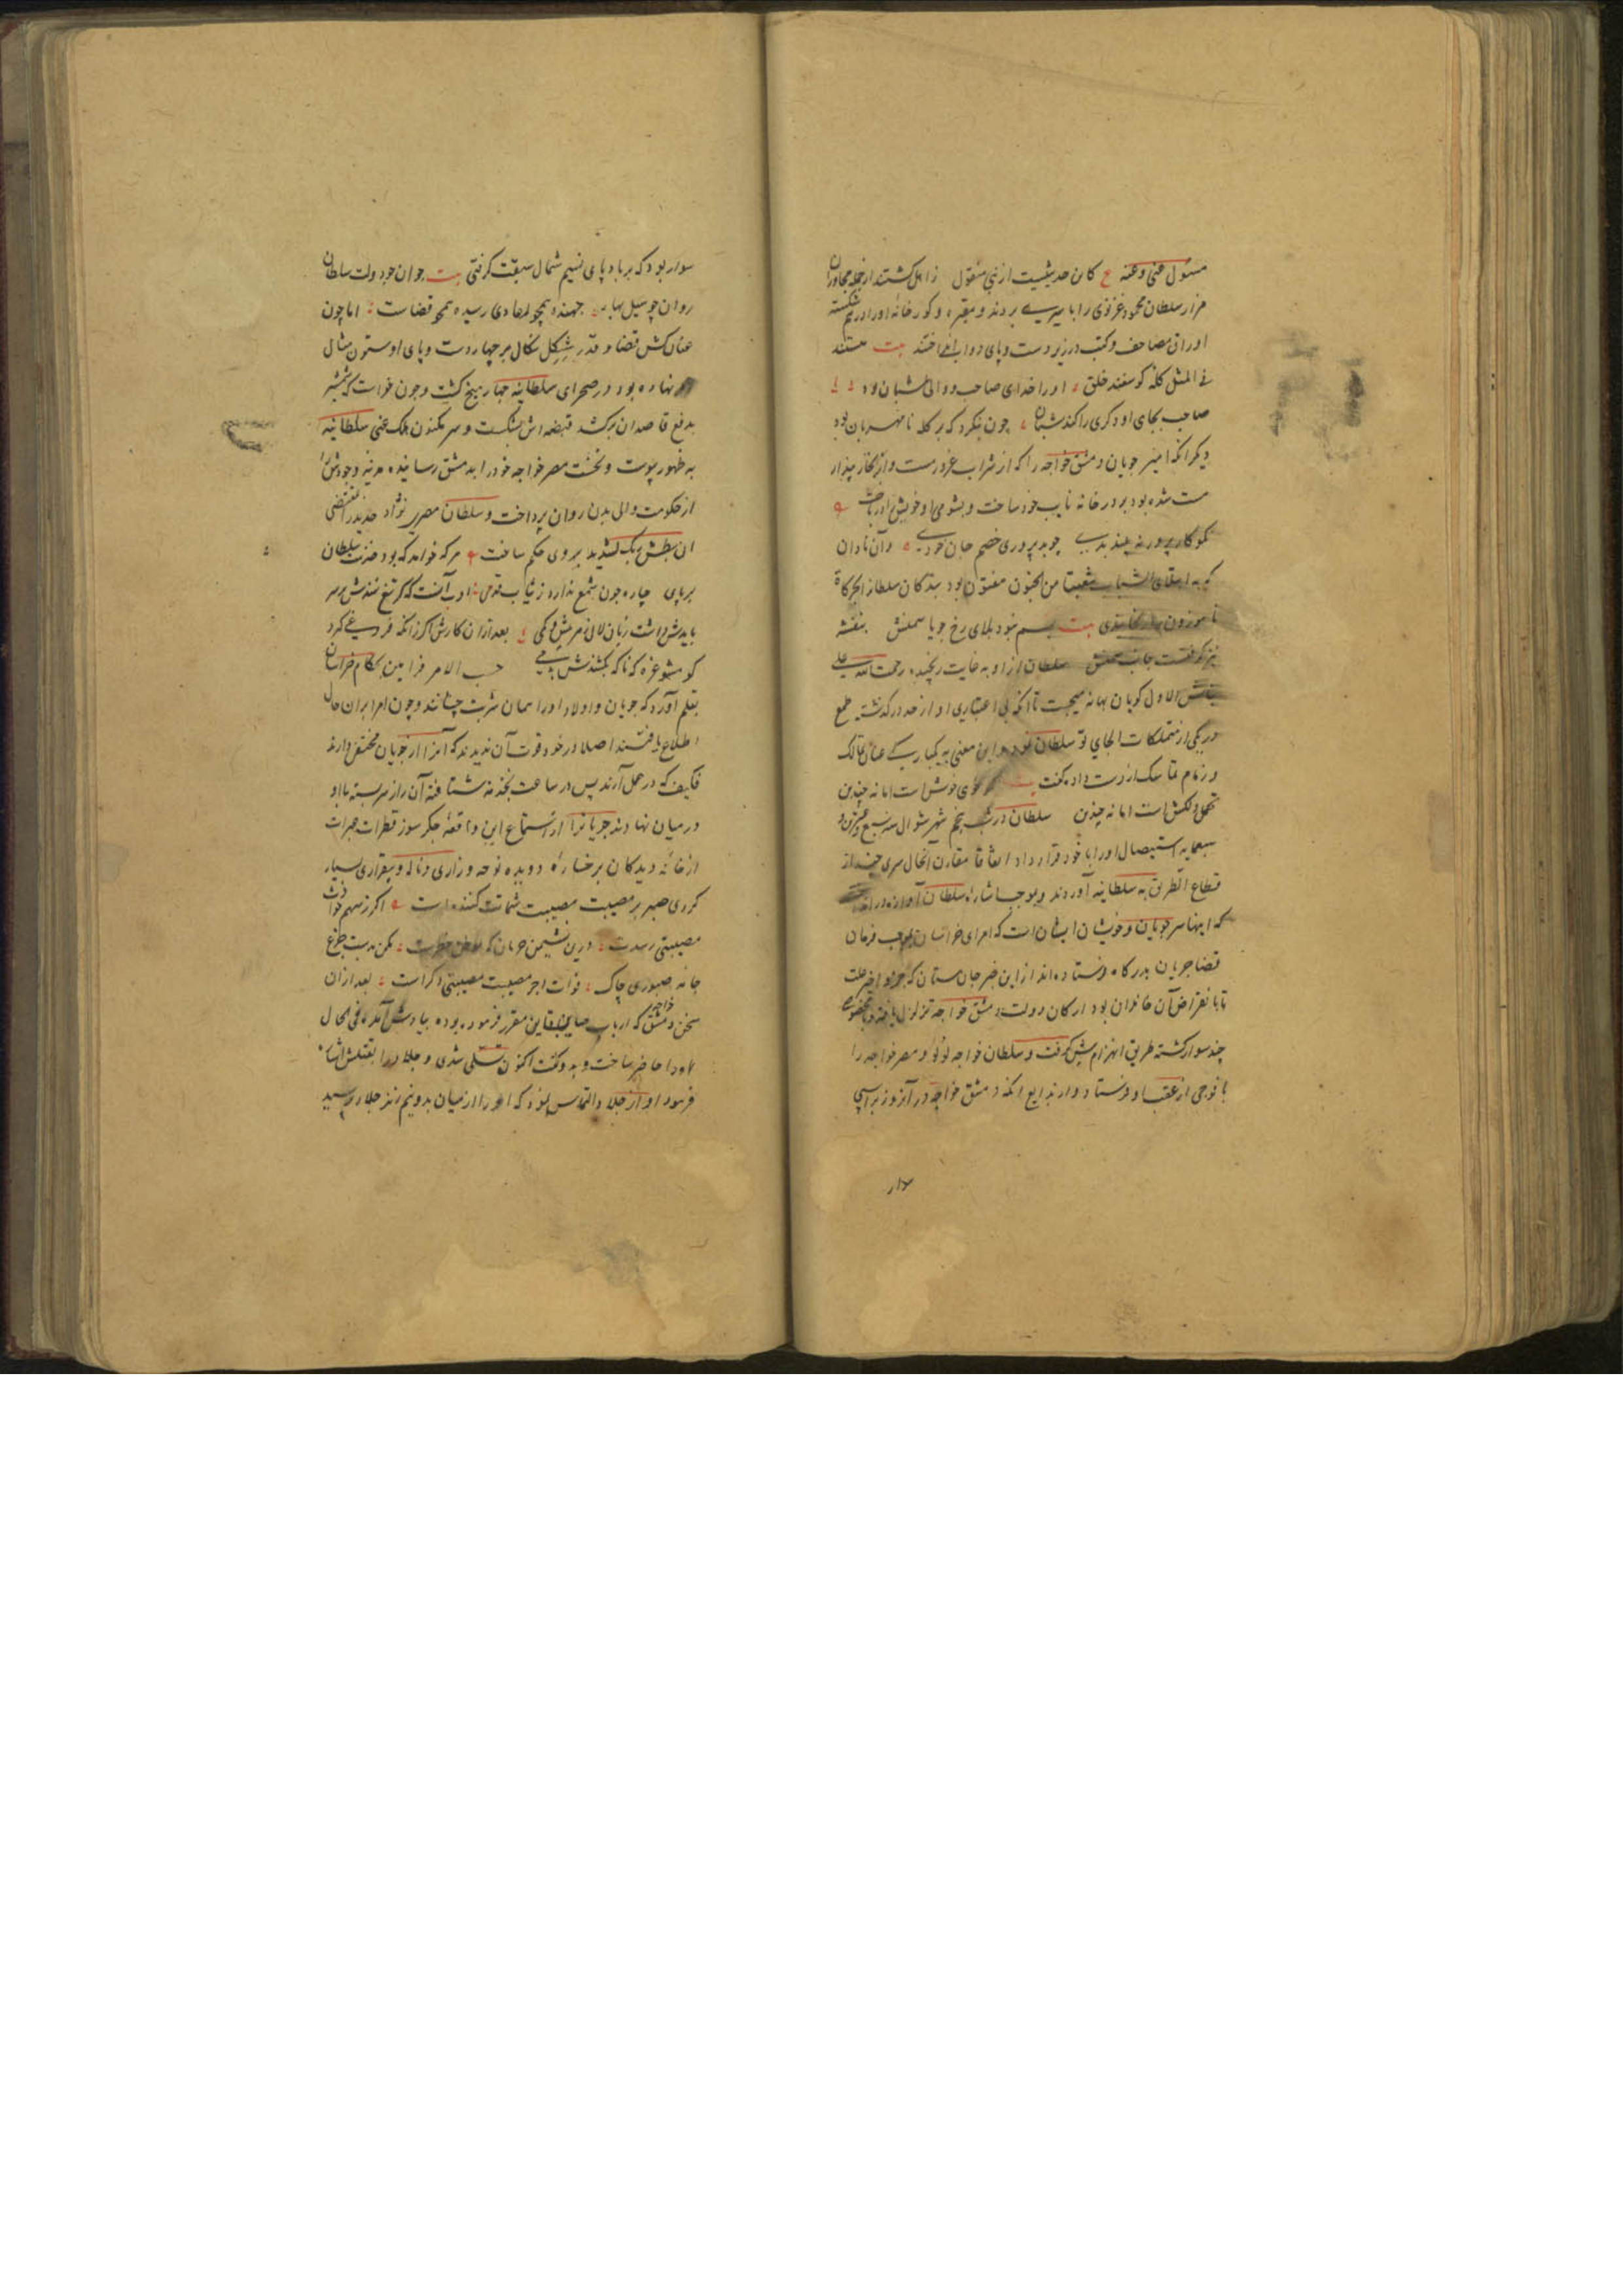 مسئول عنی وعنه ع کاین حدیثیست از نبی منقول زاهل کشتند از جمله مجاوران
مزار سلطان محمود غزنوی را با سیری بردند و مقبره و کورخانه اورا در هم شکسته
اوراق مصاحف و کتب در زیر دست و پای دواب انداختند بیت هستند
فی المثل کله کوسفند خلق اورا خدای صاحب و والی شبان بود
صاحب بجای او دکری را کند شبان چون بنکرد که بر کله نامهربان بود
دیکر انکه امیر چوبان دمشق خواجه را که از شراب غرور مست و از بخار پندار
مست شده بود بر در خانه نایب خود ساخت و بشومی او خویش را در باخت
نکو کار پرور نه بیند بدی چو بد پروری خصم جان خودی و آن نادان
که به ابتلای الشباب شعبة من الجنون مفتون بود بندکان سلطان را بحرکات
ناموزون بیت رخ جویا سمنش بنفشه
سلطان از او به غایت رنجید رحمت الله علی
الاول کویان بهانه میجست تا انکه بی اعتباری او از حد درکذشت طمع
در یکی از متملکات الجای تو سلطان نمود و این معنی به یکبارکی عنان تمالک
و زمام تماسک از دست داد کفت بیت خوشست اما نه چندین
تحمل دلکش است اما نه چندین سلطان در شب پنجم شهر شوال سنه سبع و عشرین و
سبعمایه استیصال اورا با خود قرار داد اتفاقا مقارن الحال سری چند از
قطاع الطریق به سلطانیه آوردند و بموجب اشاره سلطان آوازه در انداختند
که اینها سر جوبان و خویشان ایشان است که امرای خراسان بموجب فرمان
قضا جریان بدرکاه فرستاده اند از این خبر جان ستان که جزو اخیر علت
تا با نقراض آن خاندان بود ارکان دولت دمشق خواجه تزلزل یافته و با مخصوصی
چند سوار کشته طریق انهزام پیش کرفت و سلطان خواجه لؤلؤ و مصر خواجه را
با فوجی از عقب او فرستاد و از بدایع انکه دمشق خواجه در آنروز بر اسپی
سوار
سوار بود که بر باد پای نسیم شمال سبقت کرفتی بیت جوان جو دولت سلطان
روان چو سیل بهار جهنده همچو اعادی رسیده همچو قضاست اما چون
عنان کش قضا و قدر شکل نکال بر چهار دست و پای او ستون مثال
نهاده بود در صحرای سلطانیه چهار میخ کشت و چون خواست که شمشیر
بدفع قاصدان برکشد قبضه اش بشکست و سر مکنون هلک عنی سلطانیه
به ظهور پیوست و نخست مصر خواجه خود را بدمشق رسانیده مدینه وجودش را
از حکومت والی بدن روان پرداخت و سلطان مصری نژاد حدید را بمقتضی
ان بطش ربک لشدید بروی حکم ساخت هر که خواهد که بود حضرت سلطان
بر پای چاره چون شمع ندارد ز ثبات قدمی ادب آنست که کر تیغ نهندش بر سر
بایدش داشت زبان لال ز هر بیش و کمی بعد از آن کارش اکر زانکه فروغی کیرد
کو مشو غره که ناکه بکشندش بدمی حسب الامر فرامین بحکام خراسان
بقلم آورد که جوبان و اولاد اورا همان شربت چشانند و چون امرا بر ان حال
اطلاع یافتند اصلا در خود قوت آن ندیدند که آنرا از جوبان مختفی دارند
فکیف که در عمل آرند پس در ساعت بخدمت شتافته آن راز سربسته با او
در میان نهادند جوبانرا از استماع این واقعه جکر سوز قطرات عبرات
از خانه دیدکان بر خساره دویده نوحه و زاری و ناله و بیقراری بسیار
کردی صبر بر مصیبت مصیبت شماتت کننده است اکر ز سهم حوادث
مصیبتی رسدت درین نشیمن حرمان که موطن خطرست مکن بدست جزع
جامه صبوری چاک فوات اجر مصیبت مصیبتی دکر است بعد از ان
سخن دمشق خواجه که ارباب صاین بقاین مقرر فرموده بوده بیادش آمد فی الحال
اورا حاضر ساخت و بدو کفت اکنون تسلی شدی و جلاد را بقتلش اشاره
فرمود او از جلاد التماس نمود که اورا از میان بدو نیم زند جلاد پرسید